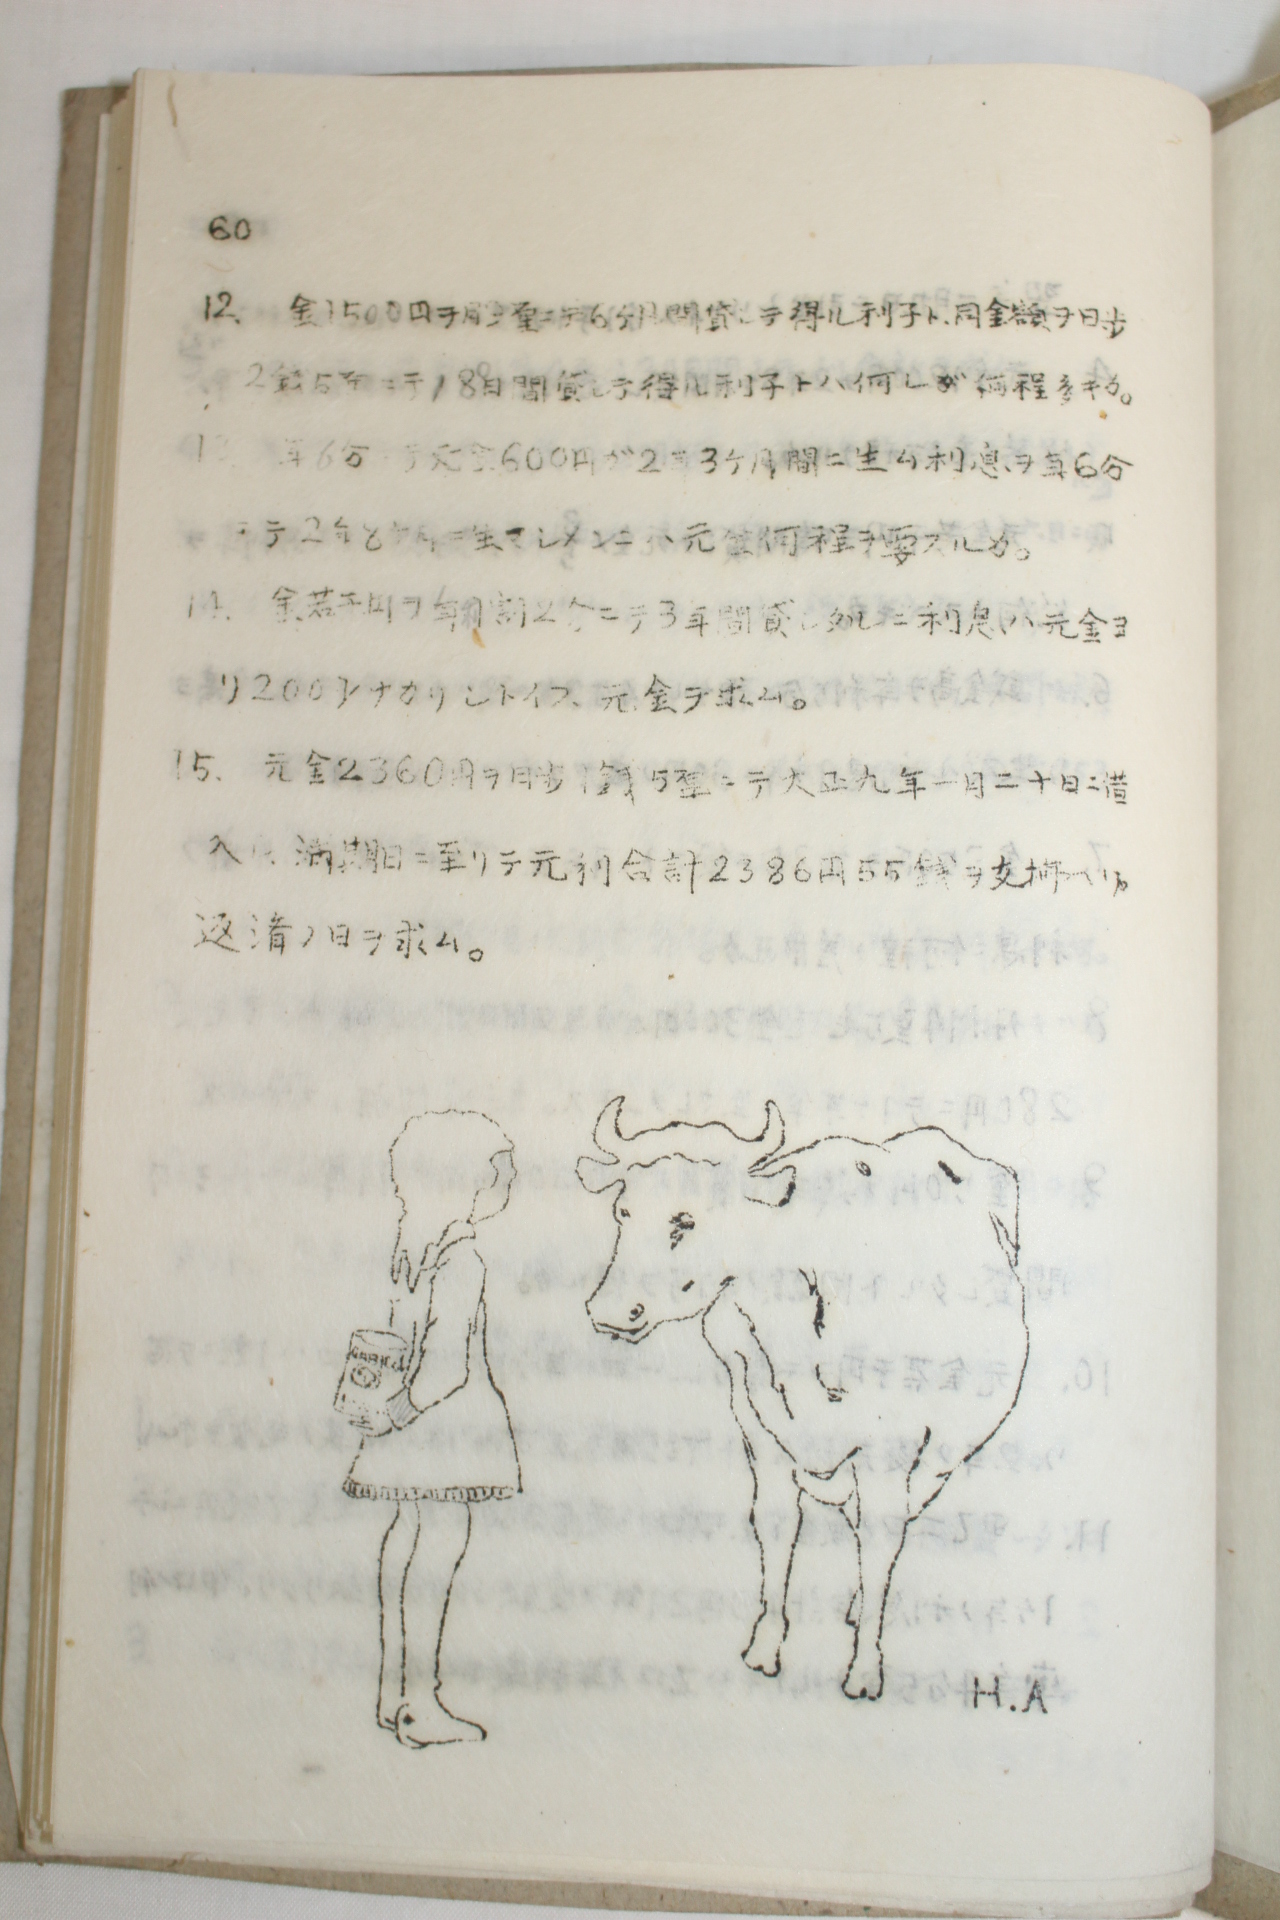 60
12. 金1500円ヲ月 ニテ6ケ月間貸シテ得ル利子ト、同金額ヲ日歩
2銭5厘ニテ18日間貸シテ得ル利子トハ何レガ何程多キカ。
年6分 テ元金600円ガ2年3ケ月間ニ生ム利息ヲ年6分
テ2年 生マシメンニハ元金何程ヲ要スルカ。
14. 金若干円ヲ 割2分ニテ3年間貸シタルニ利息ハ元金ヨ
リ200円ナカリシトイフ、元金ヲ求ム。
15. 元金2360円ヲ日歩1銭5厘ニテ大正九年一月二十日ニ借
入レ 満期日ニ至リテ元利合計2386円55銭ヲ支拂ヘリ。
返済ノ日ヲ求ム。
H.A